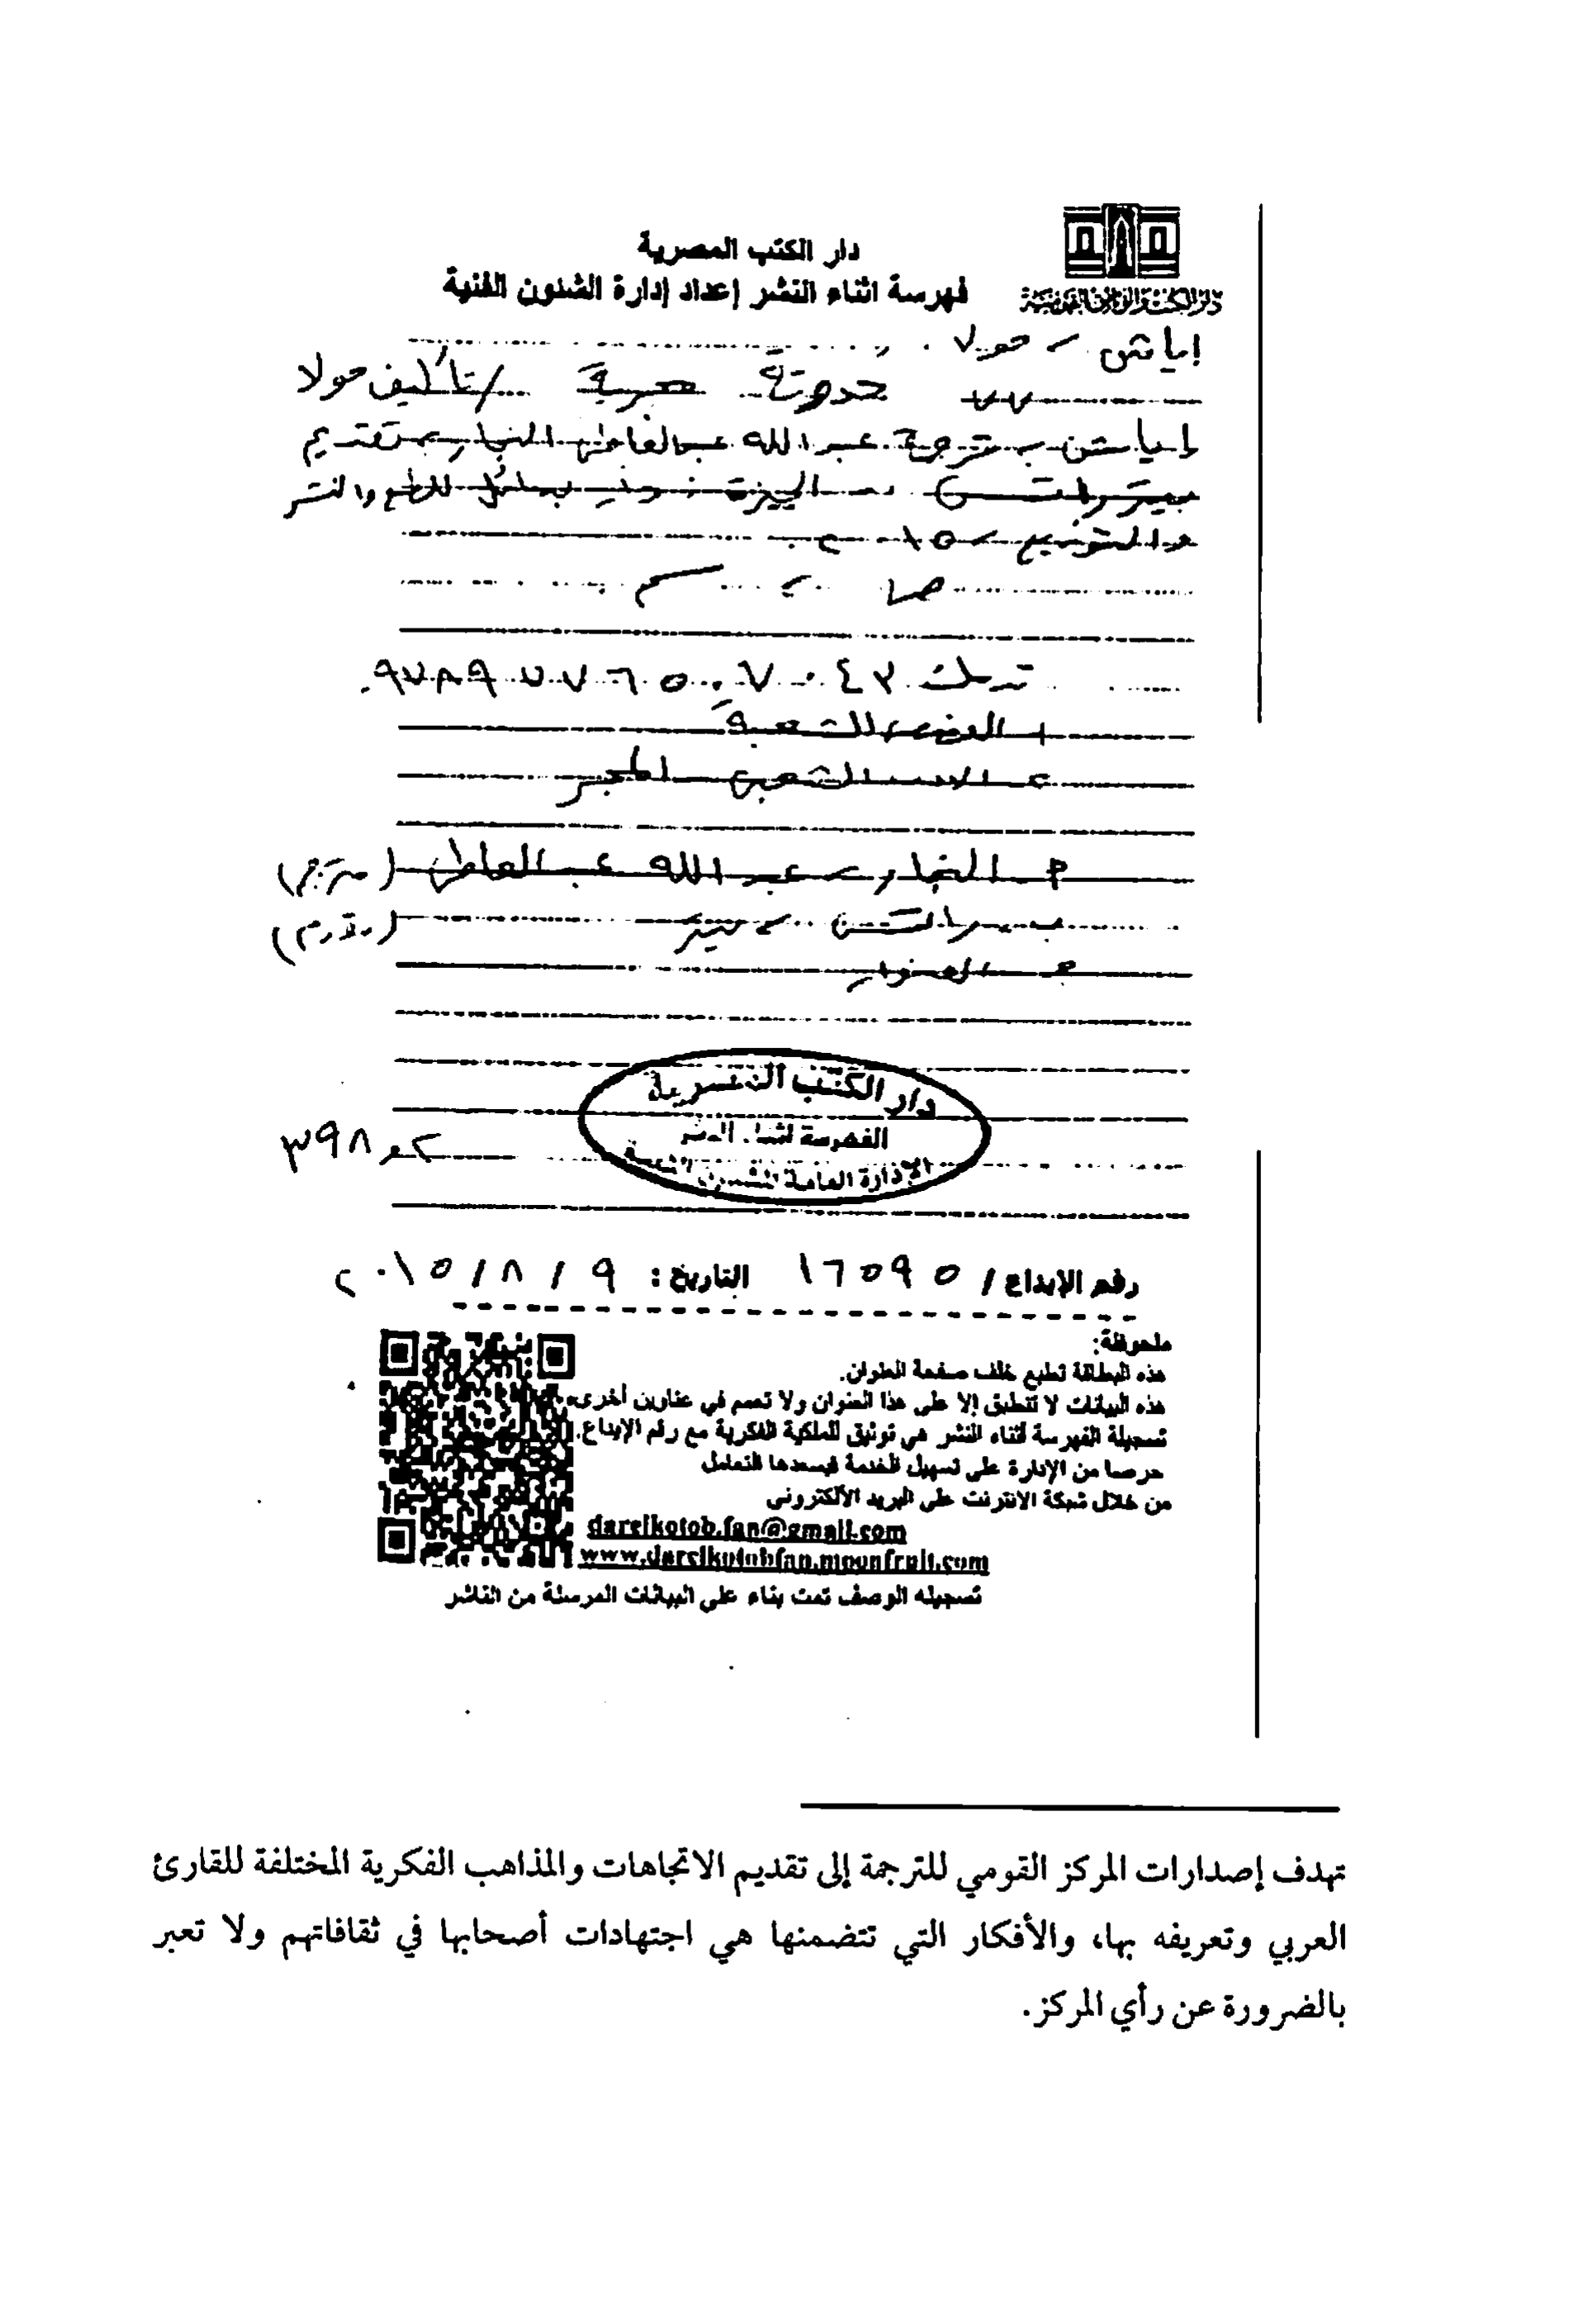 دار الكتب المصرية
فهرسة اثناء النشر إعداد إدارة الشئون الفنية
دار الكتب والوثائق القومية
إياتس، حولا
٧٧ حدوتة مجرية / تأليف حولا
إياتس؛ ترجمة عبد الله عبد العاطى النجار؛ تقديم
للطبع والنشر
والتوزيع، ٢٠١٥
ص ؛ سم
تدمك ٩٧٨٩٧٧٦٥٠٧٠٤٣
١ - القصص الشعبية
٢ - الأدب الشعبى المجرى
أ - النجار، عبد الله عبد العاطى (مترجم)
ب - (مقدم)
جـ - العنوان
دار الكتب المصرية
الفهرسة اثناء النشر
الإدارة العامة للشئون الفنية
٣٩٨
رقم الإيداع / ١٦٥٩٥ التاريخ : ٩ / ٨ / ٢٠١٥
ملحوظة:
هذه البطاقة تطبع خلف صفحة العنوان.
هذه البيانات لا تنطبق إلا على هذا العنوان ولا تعمم في عناوين أخرى.
تسجيلة الفهرسة أثناء النشر هي توثيق للملكية الفكرية مع رقم الإيداع.
حرصا من الإدارة على تسهيل الخدمة فيسعدها التعامل
من خلال شبكة الانترنت على البريد الألكتروني
darelkotob.fan@gmail.com
www.darelkotobfan.moonfruit.com
تسجيله الوصف تمت بناء على البيانات المرسلة من الناشر
تهدف إصدارات المركز القومي للترجمة إلى تقديم الاتجاهات والمذاهب الفكرية المختلفة للقارئ
العربي وتعريفه بها، والأفكار التي تتضمنها هي اجتهادات أصحابها في ثقافاتهم ولا تعبر
بالضرورة عن رأي المركز.